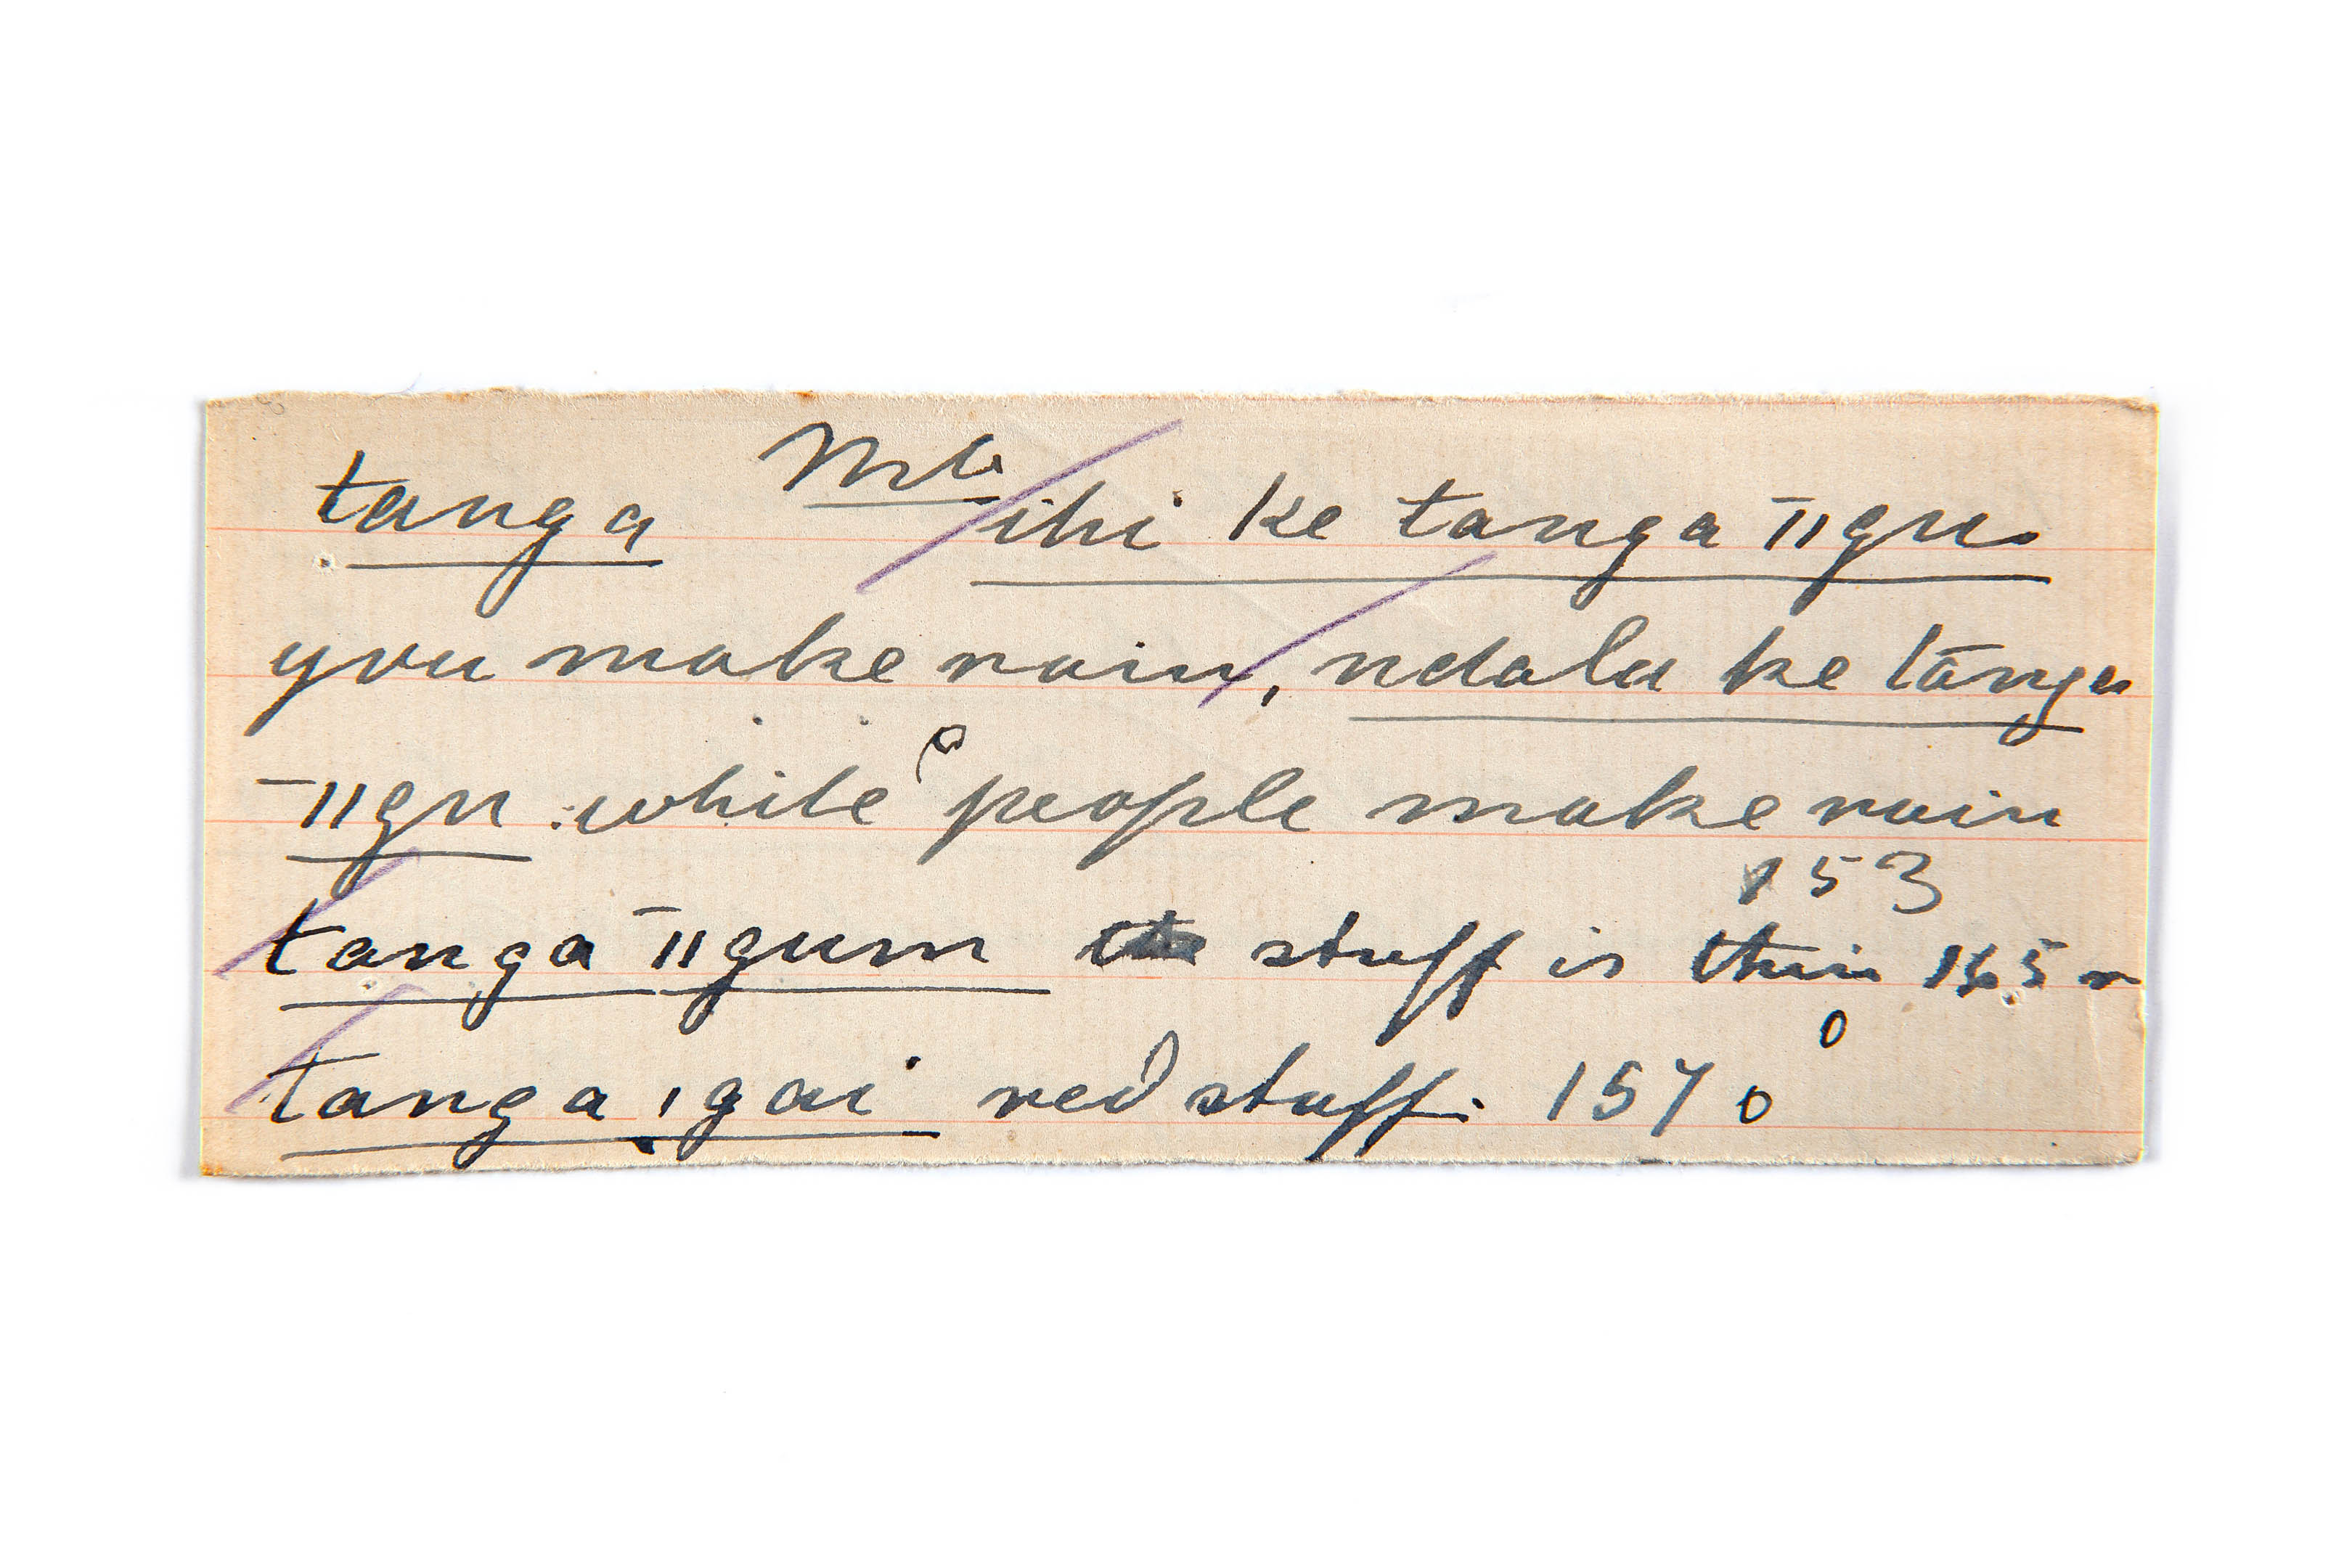 tanga Mb ihi ke tanga ‖gu.
you make rain, ndala ke tanga
‖gu : white people make rain
153
tanga ‖gum stuff is thin 165 r
0
tanga ǀgai red stuff. 157 0